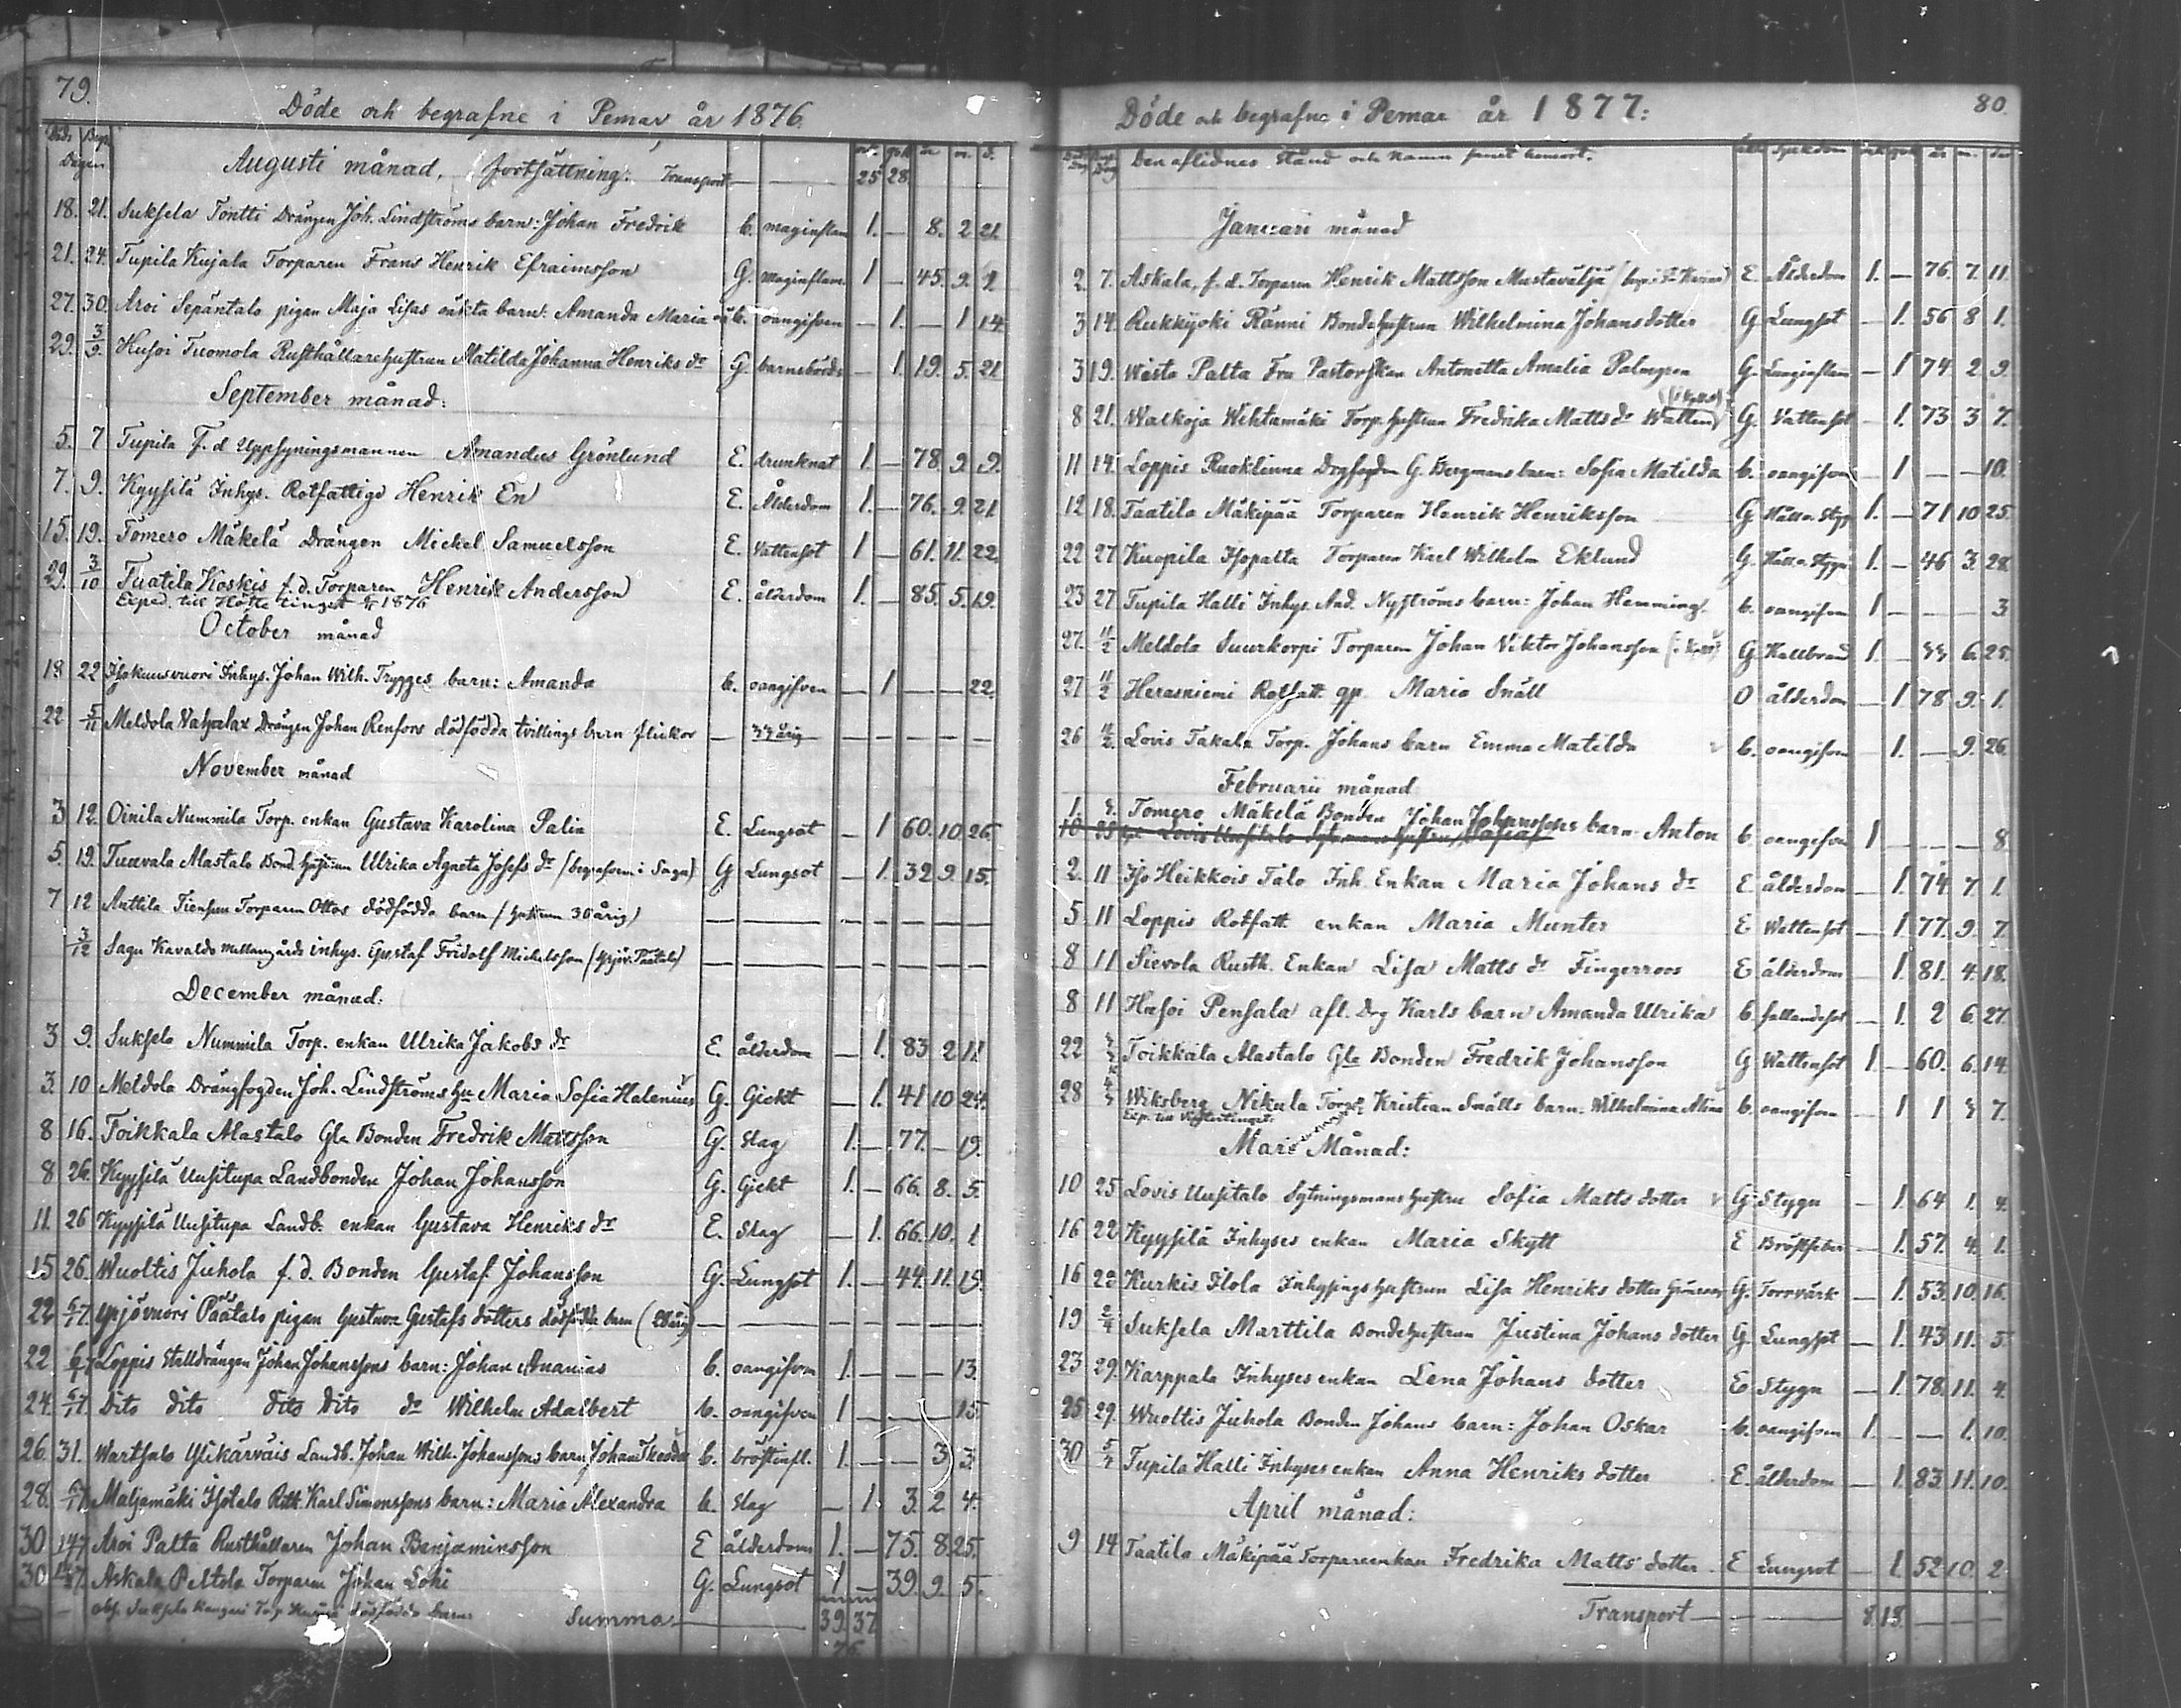 79.
Döde och begrafne i Pemar år 1876.
Döds Begr.
Dagen
Augusti månad, fortsättning. Transport — 25 28
18. 21. Suksela Tontti Drängen Joh. Lindströms barn: Johan Fredrik b. maginflam 1. — 8. 2 21.
21. 24. Tupila Kujala Torparen Frans Henrik Efraimsson G. maginflam. 1 — 45. 9. 2
27. 30. Aroi Sepäntalo pigan Maja Lisas oäkta barn: Amanda Maria b. oangifven — 1. — 1 14.
29. 3/9. Husoi Tuomola Rusthållarehustrun Matilda Johanna Henriks dr G. barnsbörds — 1. 19. 5. 21
September månad:
5. 7 Tupila F. d. Uppsyningsmannen Amandus Grönlund E. drunknat 1. — 78. 9. 9.
7. 9. Kyysilä Inhys. Rotfattige Henrik En E. Ålderdom 1. — 76. 9. 21
15. 19. Tömero Mäkelä Drängen Mickel Samuelsson E. Vattensot 1 — 61. 11. 22.
29. 3/10 Tuatila Koskis f. d. Torparen Henrik Andersson E. ålderdom 1. — 85. 5. 19.
Exped. till Höste tinget 1876
October månad
18 22 Isokuusvuori Inhys. Johan Wilh. Trygges barn: Amanda b. oangifven — 1 — — 22.
22 5/11 Meldola Drängen Johan Renfors dödfödda tvillings barn flickor — 33 årig — — — — —
November månad
3 12. Oinila Nummila Torp. enkan Gustava Karolina Palin E. Lungsot — 1 60. 10. 26.
5. 19. Tuuvala Alastalo Bond. hustrun Ulrika Agneta Josefs dr (begrafven i Sagu) G Lungsot — 1. 32 9. 15.
7 12 Anttila Torparen Ottos dödfödda barn (hustrun 30 årig) — — — — — — —
3/12 Sagu Karvaldo mellangårds inhys. Gustaf Fridolf Mickelsson — — — — — — —
December månad.
3 9. Suksela Nummila Torp. enkan Ulrika Jakobs dr E. ålderdom — 1. 83 2 11.
3. 10 Meldola Drängfogden Joh. Lindströms hu Maria Sofia Halenius G. Gickt — 1. 41 10 24.
8 16. Toikkala Alastalo Gla Bonden Fredrik Mattsson G. Slag 1. — 77. — 19.
8 26. Kyysilä Uusitupa Landbonden Johan Johansson G. Gickt 1. — 66. 8. 5.
11. 26 Kyysilä Uusitupa Landb. enkan Gustava Henriks dr E. Slag — 1. 66. 10. 1
15 26. Wuoltis Juhola f. d. Bonden Gustaf Johansson G. Lungsot 1. — 44. 11. 15.
22 6/1 77. Ypjövuori Päätalo pigan Gustava Gustafs dotters dödfödda barn — — — — — — —
22 6/1 77 Loppis Stalldrängen Johan Johanssons barn: Johan Ananias b. oangifven 1. — — — 13.
24. 6/1 77. Dito dito dito Dito do Wilhelm Adalbert b. oangifven 1 — — — 15.
26. 31. Wartsalo Ylikärväis Landb. Johan Wilh. Johanssons barn Johan Theodor b. bröstinfl. 1. — — 3 3.
28. Maljamäki Isotalo Rtth. Karl Simonssons barn: Maria Alexandra b. Slag — 1. 3. 2 4.
30 14/1 77 Aroi Palta Rusthållaren Johan Benjaminsson E ålderdom 1. — 75. 8. 25.
30 14/1 77. Askala Peltola Torparen Johan Lohi G. Lungsot 1 — 39. 9. 5.
Summa — 39. 37.
76
Döde och begrafne i Pemar år 1877: 80.
Den aflidnes stånd och namn samt hemort.
Januari månad
2 7. Askala, f. d. Torparen Henrik Mattsson Mustaväljä E. Ålderdom 1. — 76. 7. 11.
3 14. Rukkijoki Ränni Bondehustrun Wilhelmina Johansdotter G Lungsot — 1. 56 8 1.
3 19. Wista Palta Fru Pastorskan Antonetta Amalia Palmgren G. Lunginflam — 1 74. 2 9.
8 21. Walkoja Wihtamäki Torp. hustrun Fredrika Matts dr G. Vattensot — 1. 73 3 7.
11 14. Loppis Ruoklinna Drgfogden G. Bergmans barn: Sofia Matilda b. oangifven — 1 — — 10.
12 18. Taatila Mäkipää Torparen Henrik Henriksson G Håll o. Stygn 1. — 71 10 25.
22 27 Kuopila Isopalta Torparen Karl Wilhelm Eklund G. Håll o. Stygn 1. — 46 3. 28.
23 27 Tupila Halli Inhys. And. Nyströms barn: Johan Hemming b. oangifven 1 — — — 3
27. 11/2 Meldola Suurkorpi Torparen Johan Viktor Johansson G. Kallbrand 1. — 33 6. 25.
27 11/2 Herasniemi Rotfatt. gp. Maria Snäll O ålderdom — 1 78 9. 1.
26 11/2. Lovis Takala Torp. Johans barn Emma Matilda b. oangifven — 1. — 9. 26.
Februarii månad
1. 3. Tömero Mäkelä Bonden Johan Johanssons barn Anton b. oangifven 1 — — — 8
10 25 Lovis Uusitalo Sytningsmans hustrun Sofia
2. 11 Iso Heikkois Talo Inh. Enkan Maria Johans dr E ålderdom — 1. 74. 7 1.
5. 11 Loppis Rotfatt. enkan Maria Munter E Wattensot — 1 77. 9. 7.
8 11 Sievola Rusth. Enkan Lisa Matts dr Fingerroos E ålderdom — 1. 81. 4. 18.
8 11 Husoi Pensala afl. Drg Karls barn Amanda Ulrika b. fallandesot — 1. 2 6. 27.
22 Toikkala Alastalo Gla Bonden Fredrik Johansson G Wattensot 1. — 60. 6. 14.
28 4/3 Wiksberg Nikula Torp. Kristian Snälls barn: Wilhelmina Alina b. oangifven — 1 1 3 7.
Exp. till
Mars Månad:
10 25 Lovis Uusitalo Sytningsmans hustru Sofia Matts dotter G. Stygn — 1. 64 1. 4.
16 22 Kyysilä Inhyses enkan Maria Skytt E Bröstfeber — 1. 57. 4. 1.
16 22 Kurkis Ilola Inhysingshustrun Lisa Henriks dotter G. Torrvärk — 1. 53. 10. 16.
19 2/4 Suksela Marttila Bondehustrun Justina Johans dotter G. Lungsot — 1. 43 11. 5.
23 29. Karppala Inhyses enkan Lena Johans dotter E. Stygn — 1. 78. 11. 4.
25 29. Wuoltis Juhola Bonden Johans barn: Johan Oskar b. oangifven 1. — — 1. 10.
30 5/4 Tupila Halli Inhyses enkan Anna Henriks dotter E. ålderdom — 1. 83. 11. 10.
April månad:
9 14 Taatila Mäkipää Torpareenkan Fredrika Matts dotter E Lungsot — 1. 52 10. 2
Transport — — — 8. 18. — — —